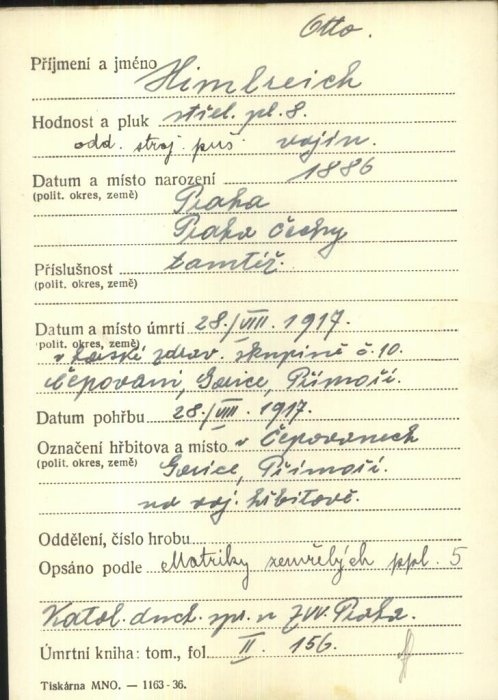 Otto.
Příjmení a jméno Himlreich
Hodnost a pluk střel. pl. 8.
odd. stroj. puš vojín.
Datum a místo narození 1886
(polit. okres, země) Praha
Praha Čechy
Příslušnost tamtéž.
(polit. okres, země)
Datum a místo úmrtí 28./VIII. 1917.
(polit. okres, země) v zdrav. skupině č. 10.
Čepovani, Gorice, Přímoří.
Datum pohřbu 28./VIII. 1917.
Označení hřbitova a místo v Čepovanech
(polit. okres, země) Gorice, Přímoří.
na voj. hřbitově.
Oddělení, číslo hrobu
Opsáno podle Matriky zemřelých ppl. 5
Katol. duch. spr. u ZVV. Praha.
Úmrtní kniha: tom., fol. II. 156.
Tiskárna MNO. — 1163-36.